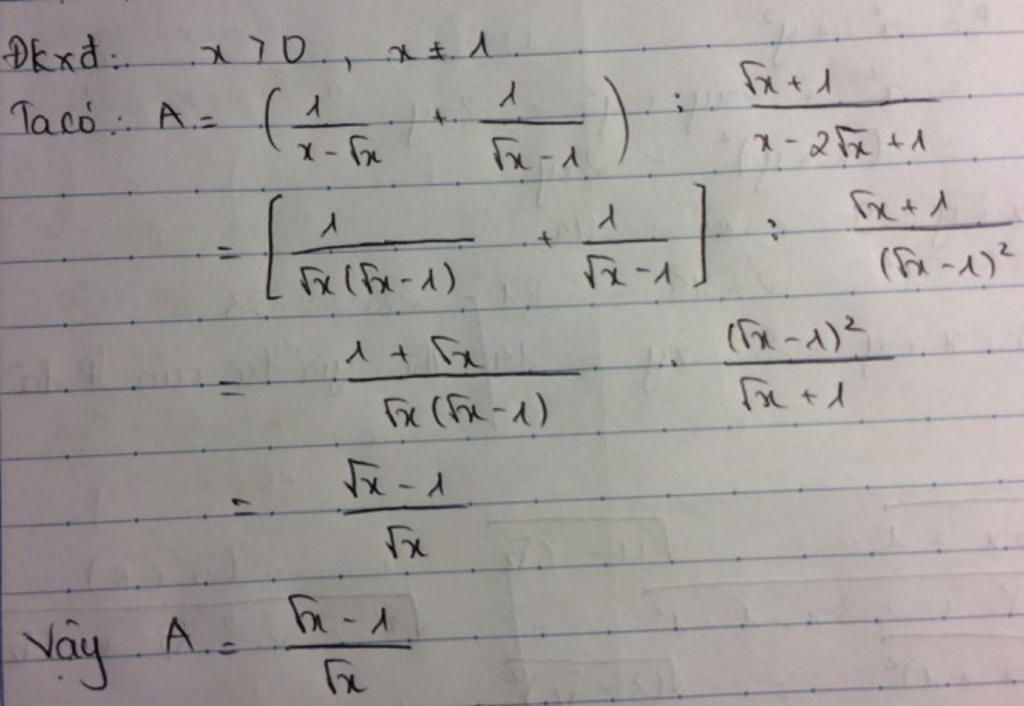 Đkxđ: x > 0, x ≠ 1
Ta có: A = (1/(x - √x) + 1/(√x - 1)) : (√x + 1)/(x - 2√x + 1)
= [1/(√x(√x - 1)) + 1/(√x - 1)] : (√x + 1)/(√x - 1)²
= (1 + √x)/(√x(√x - 1)) . (√x - 1)²/(√x + 1)
= (√x - 1)/√x
Vậy A = (√x - 1)/√x